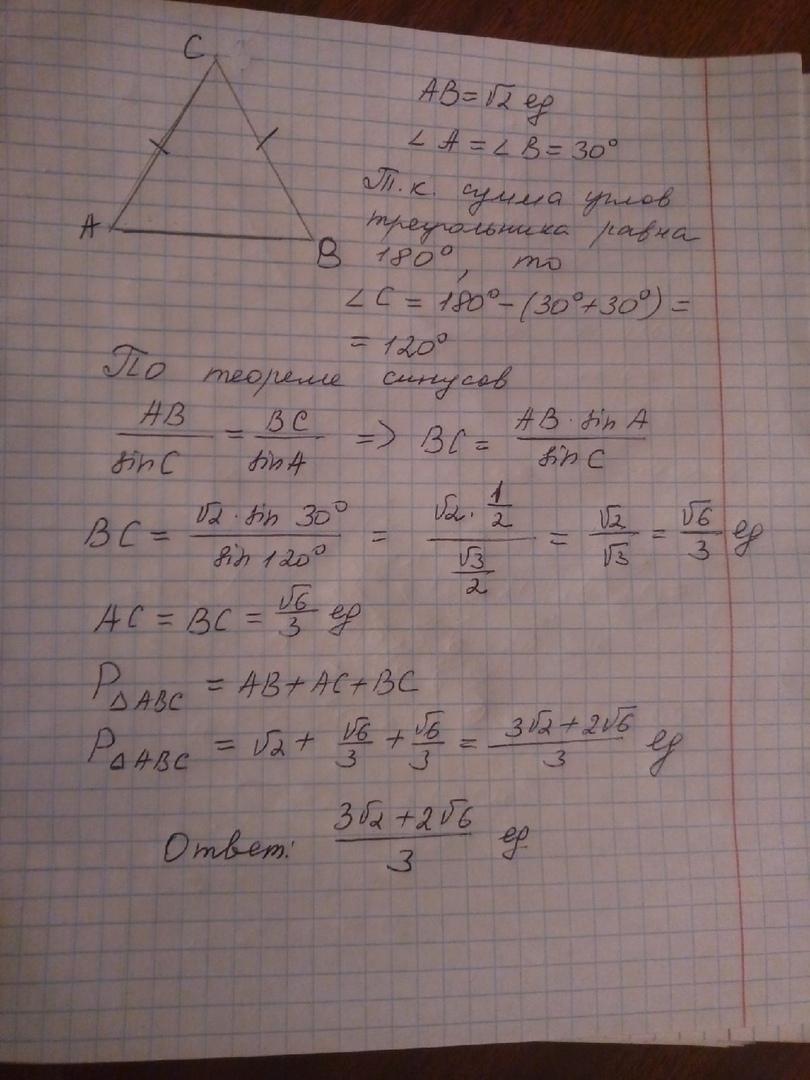 C
A
B
AB = √2 ед
∠A = ∠B = 30°
Т.к. сумма углов
треугольника равна
180°, то
∠C = 180° - (30° + 30°) =
= 120°
По теореме синусов
AB/sin C = BC/sin A => BC = AB · sin A/sin C
BC = √2 · sin 30°/sin 120° = (√2 · 1/2)/(√3/2) = √2/√3 = √6/3 ед
AC = BC = √6/3 ед
P△ABC = AB + AC + BC
P△ABC = √2 + √6/3 + √6/3 = (3√2 + 2√6)/3 ед
Ответ: (3√2 + 2√6)/3 ед